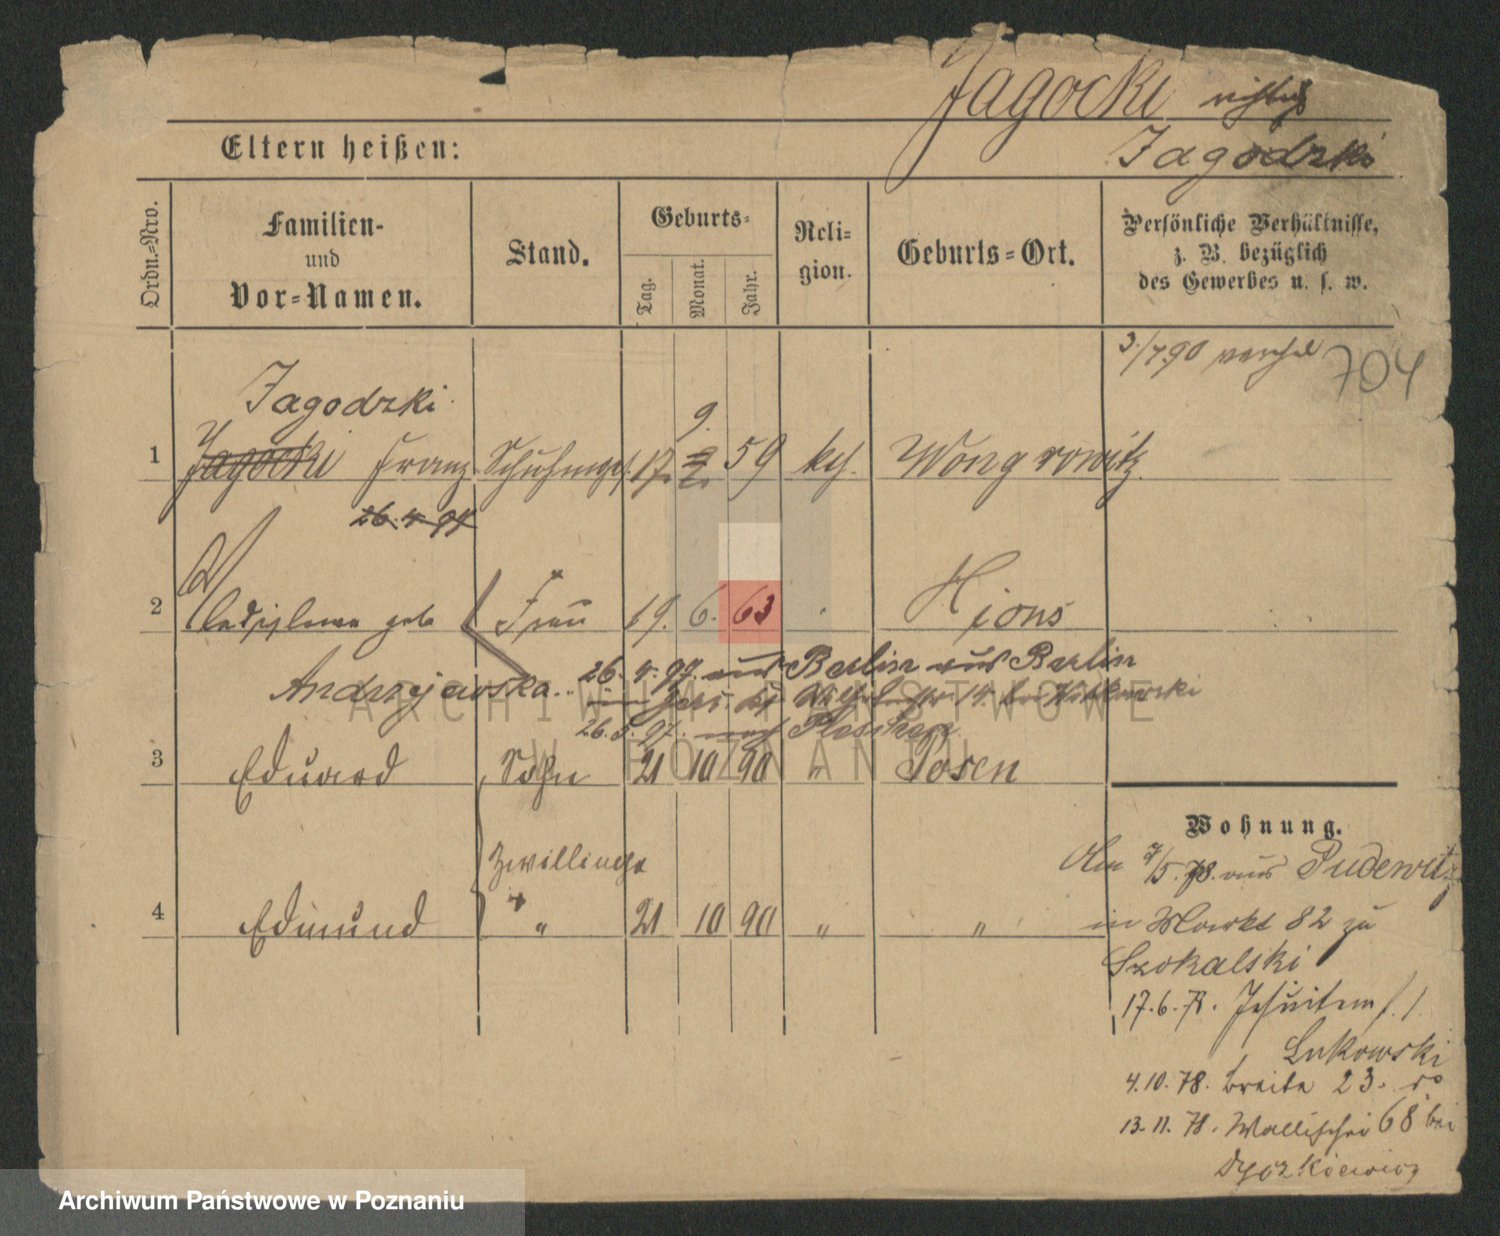 Jagocki richtig
Eltern heißen: Jagodzki
Ordn.-Nro. Familien- und Vor-Namen. Stand. Geburts- Tag. Monat. Jahr. Reli-gion. Geburts-Ort. Persönliche Verhältnisse, z. B. bezüglich des Gewerbes u. s. w.
3/7 90
704
Jagodzki
9.
1 Jagocki Franz 17. 59 kth. Wongrowitz
26.4.97
2 geb Frau 19. 6. 63 Xions
Andrzejewska.
26.4.97. aus Berlin aus Berlin
14. bei
26.5.97. nach
3 Eduard Sohn 21 10 90 " Posen
Zwillinge
4 Edmund " 21 10 90 " "
Wohnung.
Am 7/5. 78. aus Pudewitz
in Markt 82 zu
Szokalski
17.6.78. Jesuiten
Lukowski
4.10.78. Breite 23.
13.11.78. Wallischei 68 bei
ARCHIWUM PAŃSTWOWE
W POZNANIU
Archiwum Państwowe w Poznaniu